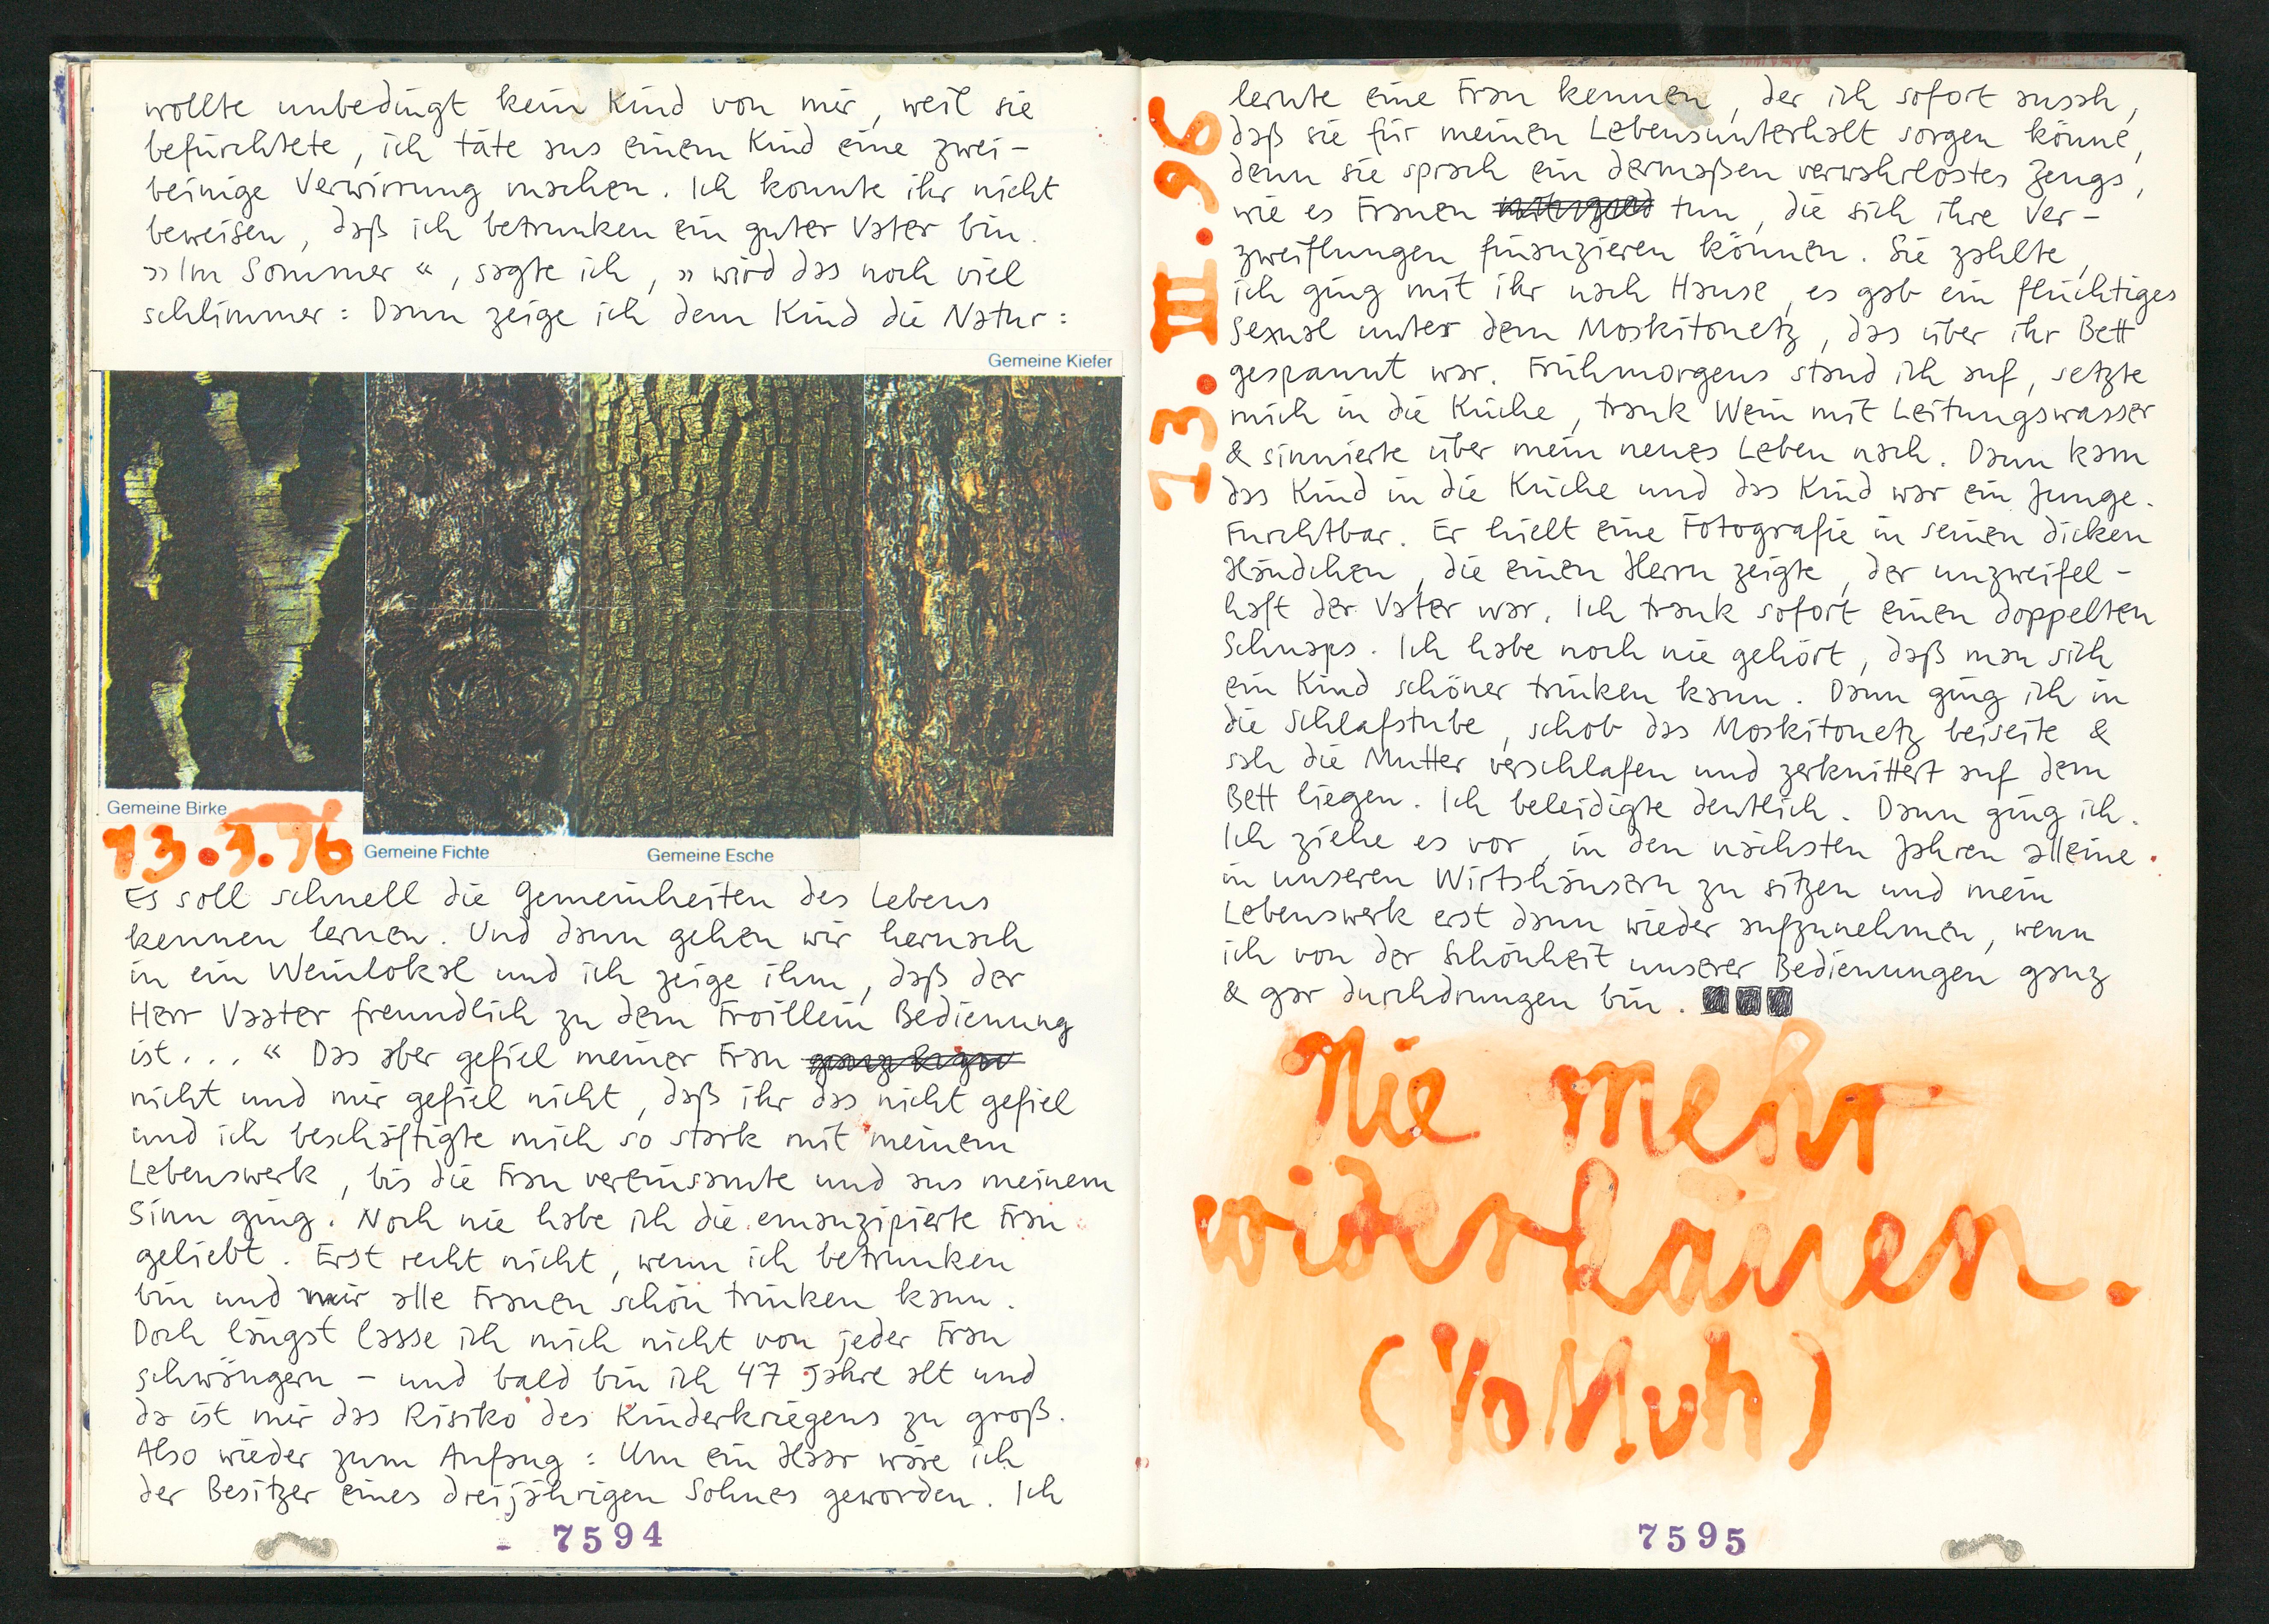 wollte unbedingt kein Kind von mir, weil sie
befürchtete, ich täte aus einem Kind eine zwei-
beinige Verwirrung machen. Ich konnte ihr nicht
beweisen, daß ich betrunken ein guter Vater bin.
»Im Sommer«, sagte ich, »wird das noch viel
schlimmer: Dann zeige ich dem Kind die Natur:
Gemeine Kiefer
Gemeine Birke
Gemeine Fichte
Gemeine Esche
13.3.96
Es soll schnell die Gemeinheiten des Lebens
kennen lernen. Und dann gehen wir hernach
in ein Weinlokal und ich zeige ihm, daß der
Herr Vaater freundlich zu dem Froillein Bedienung
ist...« Das aber gefiel meiner Frau
nicht und mir gefiel nicht, daß ihr das nicht gefiel
und ich beschäftigte mich so stark mit meinem
Lebenswerk, bis die Frau vereinsamte und aus meinem
Sinn ging. Noch nie habe ich die emanzipierte Frau
geliebt. Erst recht nicht, wenn ich betrunken
bin und mir alle Frauen schön trinken kann.
Doch längst lasse ich mich nicht von jeder Frau
schwängern – und bald bin ich 47 Jahre alt und
da ist mir das Risiko des Kinderkriegens zu groß.
Also wieder zum Anfang: Um ein Haar wäre ich
der Besitzer eines dreijährigen Sohnes geworden. Ich
7594
13.III.96
lernte eine Frau kennen, der ich sofort ansah,
daß sie für meinen Lebensunterhalt sorgen könne,
denn sie sprach ein dermaßen verwahrlostes Zeugs,
wie es Frauen tun, die sich ihre Ver-
zweiflungen finanzieren können. Sie zahlte,
ich ging mit ihr nach Hause, es gab ein flüchtiges
Sexual unter dem Moskitonetz, das über ihr Bett
gespannt war. Frühmorgens stand ich auf, setzte
mich in die Küche, trank Wein mit Leitungswasser
& sinnierte über mein neues Leben nach. Dann kam
das Kind in die Küche und das Kind war ein Junge.
Furchtbar. Er hielt eine Fotografie in seinen dicken
Händchen, die einen Herrn zeigte, der unzweifel-
haft der Vater war. Ich trank sofort einen doppelten
Schnaps. Ich habe noch nie gehört, daß man sich
ein Kind schöner trinken kann. Dann ging ich in
die Schlafstube, schob das Moskitonetz beiseite &
sah die Mutter verschlafen und zerknittert auf dem
Bett liegen. Ich beleidigte deutlich. Dann ging ich.
Ich ziehe es vor, in den nächsten Jahren alleine
in unseren Wirtshäusern zu sitzen und mein
Lebenswerk erst dann wieder aufzunehmen, wenn
ich von der Schönheit unserer Bedienungen ganz
& gar durchdrungen bin.
Nie mehr
widerkäuen.
(Yo Muh)
7595